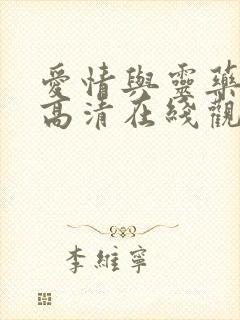 愛情與靈藥
高清在綫觀
李維寧